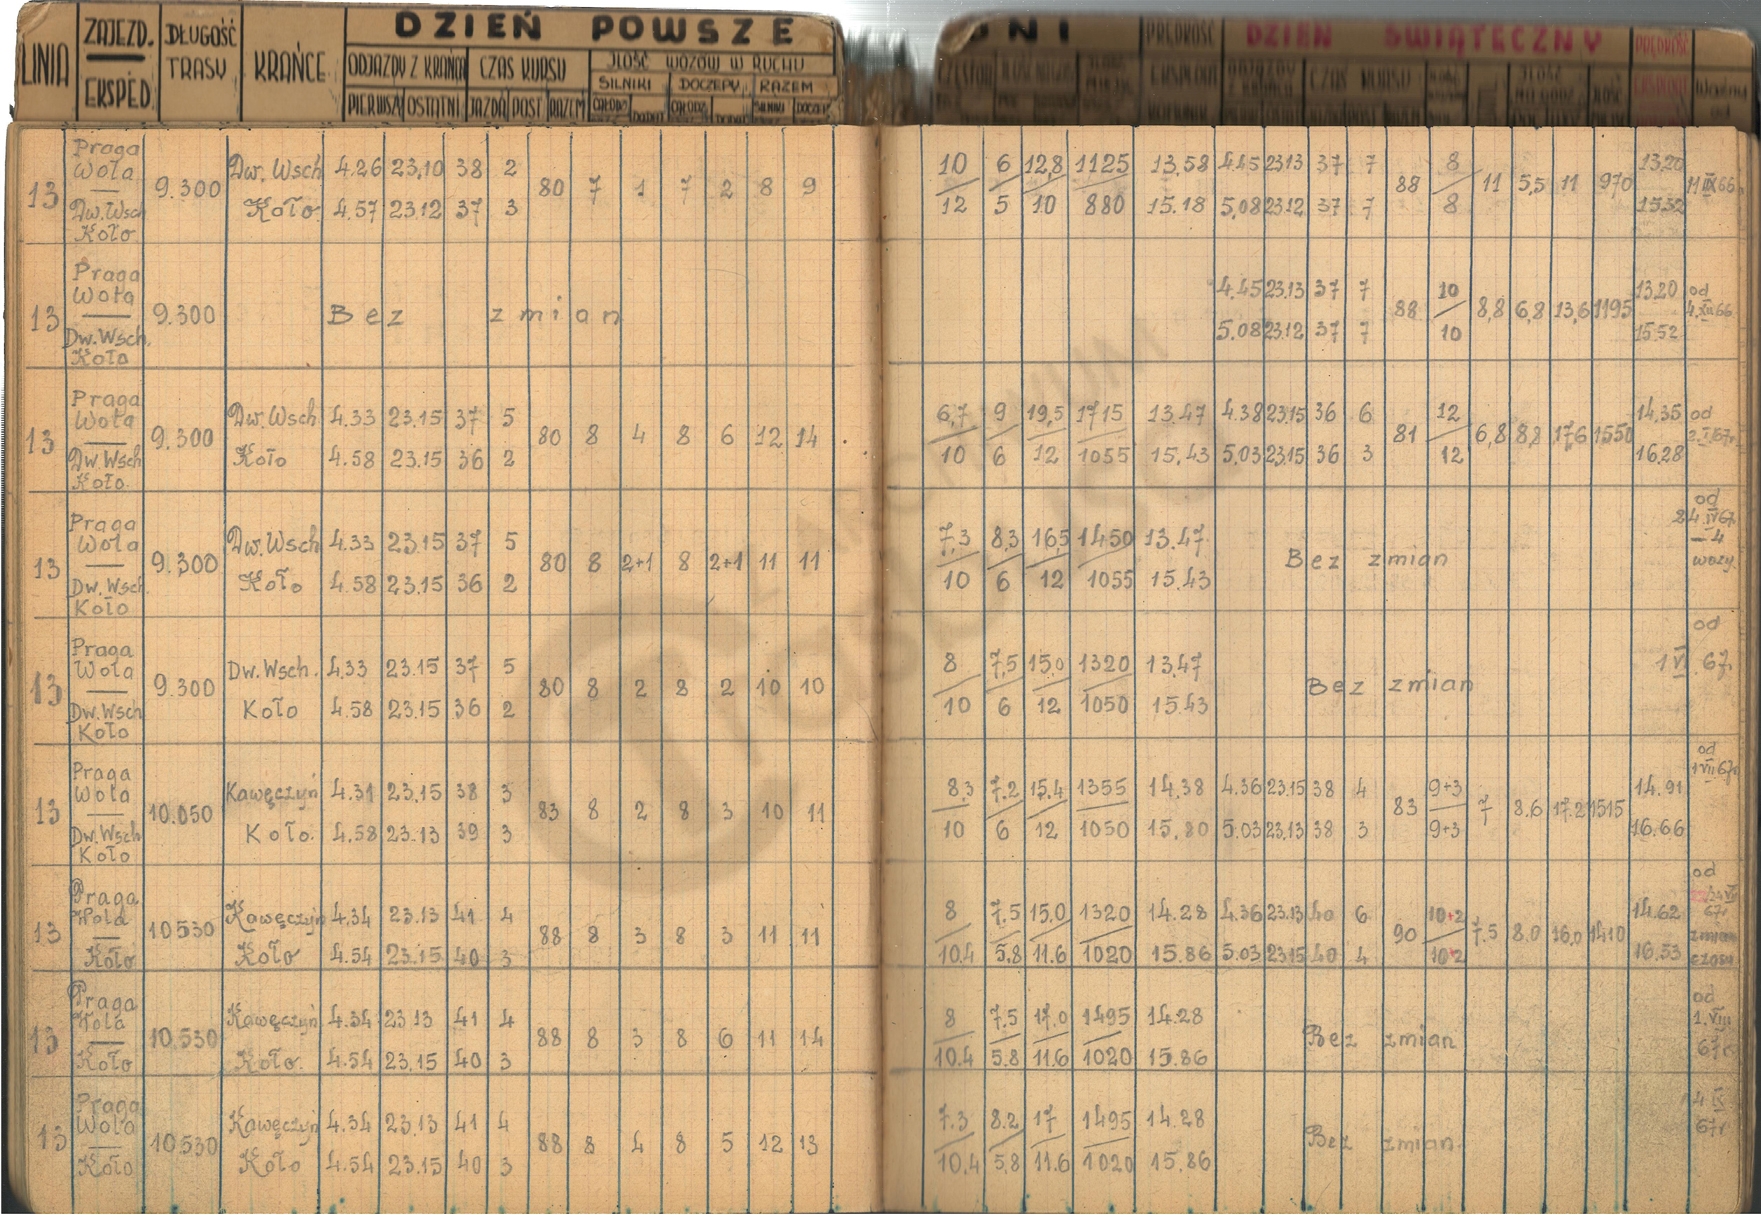 DZIEŃ POWSZE DNI
DZIEŃ ŚWIĄTECZNY
LINIA ZAJEZD. EKSPED. DŁUGOŚĆ TRASY KRAŃCE
ODJAZDY Z KRAŃCA CZAS KURSU ILOŚĆ WOZÓW W RUCHU
SILNIKI DOCZEPY RAZEM
PIERWSZY OSTATNI JAZDA POST RAZEM
Praga
Wola
Dw. Wsch
Koło
13 9.300 80 7 1 7 2 8 9 88 11 5,5 11 970 11 IX 66
Dw. Wsch 4.26 23,10 38 2 10 6 12,8 1125 13,58 4.45 23.13 37 7 8 13.20
Koło. 4.57 23.12 37 3 12 5 10 880 15.18 5,08 23.12 37 7 8 15.32
Praga
Wola
Dw. Wsch.
Koło
13 9.300 Bez zmian 88 8,8 6,8 13,6 1195 od 4.XII 66
4.45 23.13 37 7 10 13.20
5.08 23.12 37 7 10 15.52
Praga
Wola
Dw. Wsch
Koło.
13 9.300 80 8 4 8 6 12 14 81 6,8 8,8 17,6 1550 od
Dw. Wsch 4.33 23.15 37 5 6,7 9 19,5 1715 13.47 4.38 23.15 36 6 12 14.35
Koło 4.58 23.15 36 2 10 6 12 1055 15,43 5,03 23.15 36 3 12 16.28
Praga
Wola
Dw. Wsch.
Koło
13 9.300 80 8 2+1 8 2+1 11 11 Bez zmian od 24.IV 67. – 4 wozy
Dw. Wsch 4.33 23.15 37 5 7,3 8,3 16,5 1450 13.47
Koło 4.58 23.15 36 2 10 6 12 1055 15.43
Praga
Wola
Dw. Wsch
Koło
13 9.300 80 8 2 8 2 10 10 Bez zmian od 1 VI 67.
Dw. Wsch. 4.33 23.15 37 5 8 7,5 15,0 1320 13.47
Koło 4.58 23.15 36 2 10 6 12 1050 15.43
Praga
Wola
Dw. Wsch
Koło
13 10.050 83 8 2 8 3 10 11 83 7 8.6 17.2 1515 od 1 VII 67r
Kawęczyń 4.31 23.15 38 3 8,3 7.2 15.4 1355 14,38 4.36 23.15 38 4 9+3 14.91
Koło. 4.58 23.13 39 3 10 6 12 1050 15,80 5.03 23.13 38 3 9+3 16.66
Praga
Wola
Koło
13 10530 88 8 3 8 3 11 11 90 7.5 8,0 16,0 1410 od 67r zmian czasu
Kawęczyń 4,34 23.13 41 4 8 7,5 15,0 1320 14.28 4.36 23.13 40 6 10+2 14.62
Koło 4.54 23.15 40 3 10.4 5,8 11.6 1020 15.86 5.03 23.15 40 4 10+2 16.53
Praga
Wola
Koło
13 10.530 88 8 3 8 6 11 14 Bez zmian od 1.VIII 67r
Kawęczyń 4.34 23 13 41 4 8 7.5 17.0 1495 14.28
Koło. 4.54 23,15 40 3 10.4 5.8 11.6 1020 15.86
Praga
Wola
Koło
13 10530 88 8 4 8 5 12 13 Bez zmian. 4 IX 67r
Kawęczyń 4.34 23.13 41 4 7.3 8.2 17 1495 14.28
Koło 4.54 23.15 40 3 10,4 5,8 11.6 1020 15,86